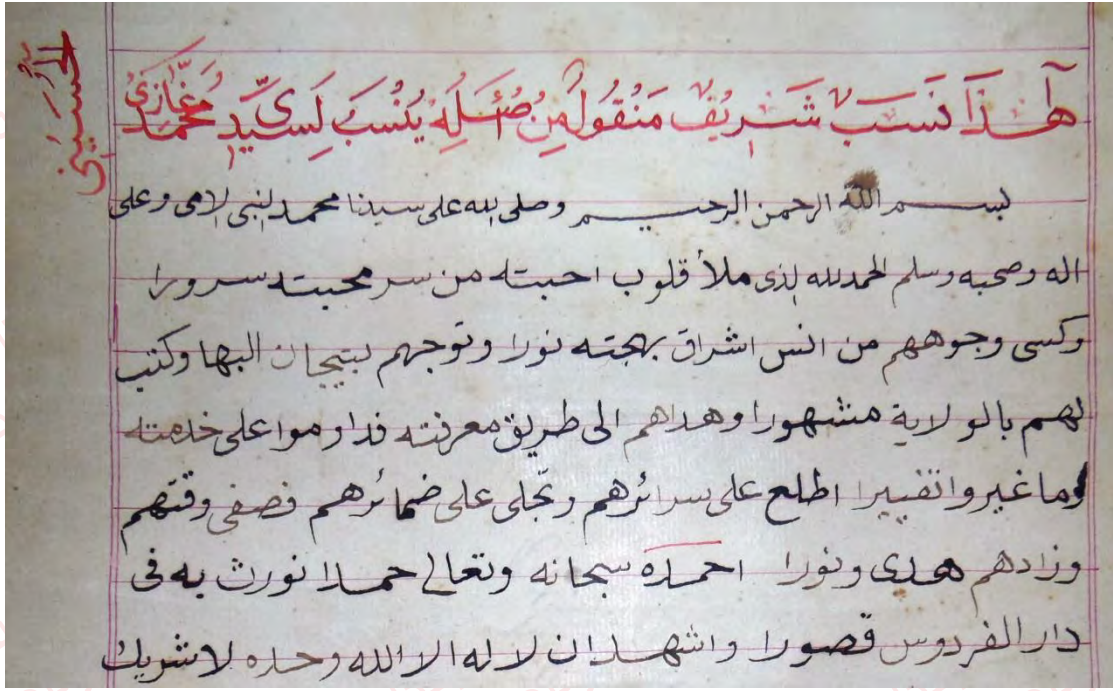 هٰذَا نَسَب شَرِيْف مَنْقُولٌ مِنْ صُئَلِهْ يُنْسَبُ لِسَيِّدِ مُحَمَّد غَازِي
الحُسَيْنِى
بسم الله الرحمن الرحيم وصلى الله على سيدنا محمد النبى الامى وعلى
اله وصحبه وسلم الحمدلله الذى ملأ قلوب احبته من سر محبته سرورا
وكسى وجوههم من انس اشراق بهجته نورا وتوجهم بتيجان البها وكتب
لهم بالولاية منشهورا وهداهم الى طريق معرفته فداوموا على خدمته
وما غيروا تغييرا اطلع على سرائرهم وتجلى على ضمائرهم فصفى وقتهم
وزادهم هدى ونورا احمده سبحانه وتعالى حمدا نورث به فى
دار الفردوس قصورا واشهدان لا له الا الله وحده لا شريك